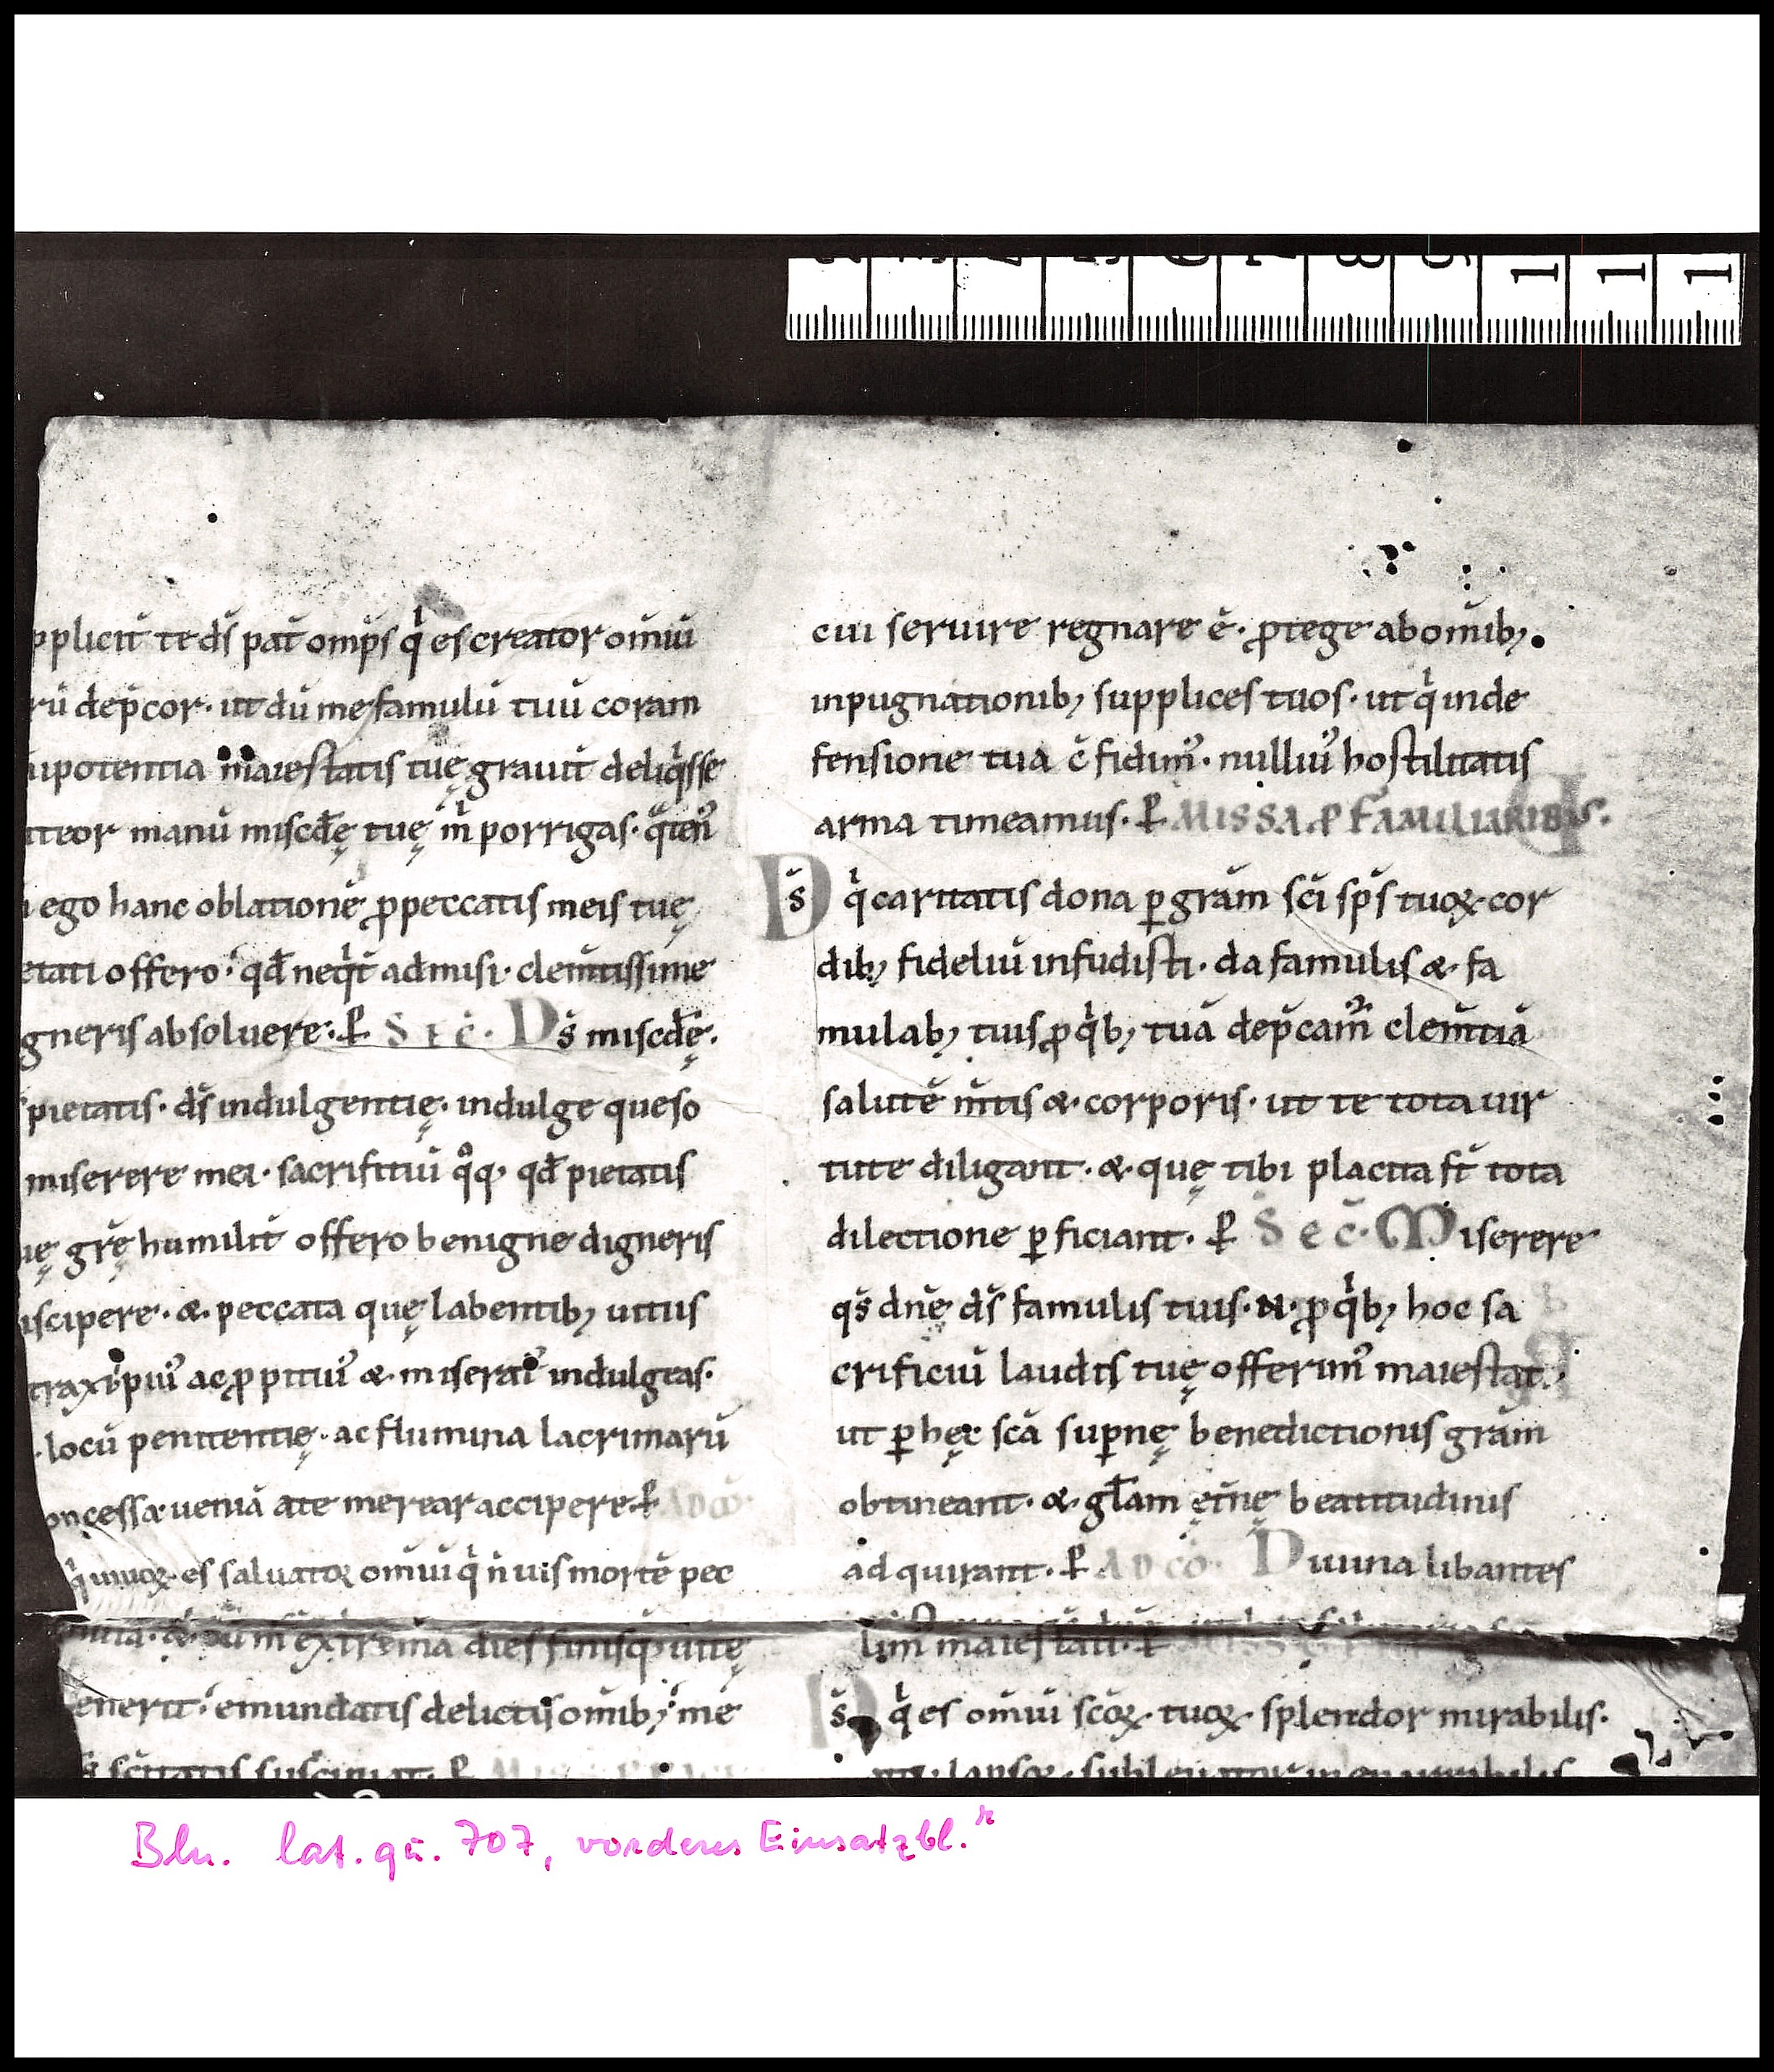 pplicit̄ te d̄s pat̄ omp̄s qͥ es creator om̄iū
rū dep̄cor · ut dū me famulū tuū coram
nipotentia maiestatis tuę grauit̄ deliqͥsse
teor manū mis̄cdę tuę m̄ porrigas ·
ego hanc oblationē ꝓ peccatis meis tuę
etati offero · qd̄ neqͥt̄ admisi · clem̄tissime
gneris absoluere · P̄ Sec̄ · Ds̄ mis̄cdę ·
pietatis · d̄s indulgentię · indulge queso
miserere mei · sacrifitiū qͦq, qd̄ pietatis
uę gr̄ę humilit̄ offero benigne digneris
scipere · & · peccata quę labentib; uitiis
traxi piuˀ ac ꝓpitiuˀ & · miseratˀ indulgeas ·
· locū penitentię · ac flumina lacrimarū
oncessa ueniā a te merear accipere · P̄ AD CŌ
qͥ uiuoꝝ · es saluatoꝝ om̄iū qͥ n̄ uis mortē pec
extrema dies finisq, uitę
enerit · emundatis delictis om̄ib; me
sc̄itatis suscipiat · P̄
cui seruire regnare ē · ꝓtege ab om̄ib;
inpugnationib; supplices tuos · ut qͥ in de
fensione tua c̄fidimˀ · nulliuˀ hostilitatis
arma timeamus · P̄ MISSA P FAMILIARIBUS ·
Ds̄ qͥ caritatis dona ꝑ grām sc̄i sp̄s tuoꝝ · cor
dib; fideliū infudisti · da famulis & · fa
mulab; tuis ꝓ qͥb; tuā dep̄camˀ clem̄tiā
salutē m̄tis & · corporis · ut te tota uir
tute diligant · & · quę tibi placita st̄ tota
dilectione ꝑficiant · P̄ Sec̄ · Miserere
qs̄ dn̄e d̄s famulis tuis · N · ꝓ qͥb; hoc sa
crificiū laudis tuę offerimˀ maiestat ·
ut ꝑ hęc sc̄a suꝑnę benedictionis grām
obtineant · & · gl̄am ęt̄nę beatitudinis
adquirant · P̄ AD CŌ · Diuina libantes
lim̄ maiestati · P̄
Ds̄ qͥ es om̄iū sc̄oꝝ · tuoꝝ · splendor mirabilis ·
lapsoꝝ · subleuator inenarrabilis
Bln. lat. qu. 707, vorderes Einsatzbl.ʳ